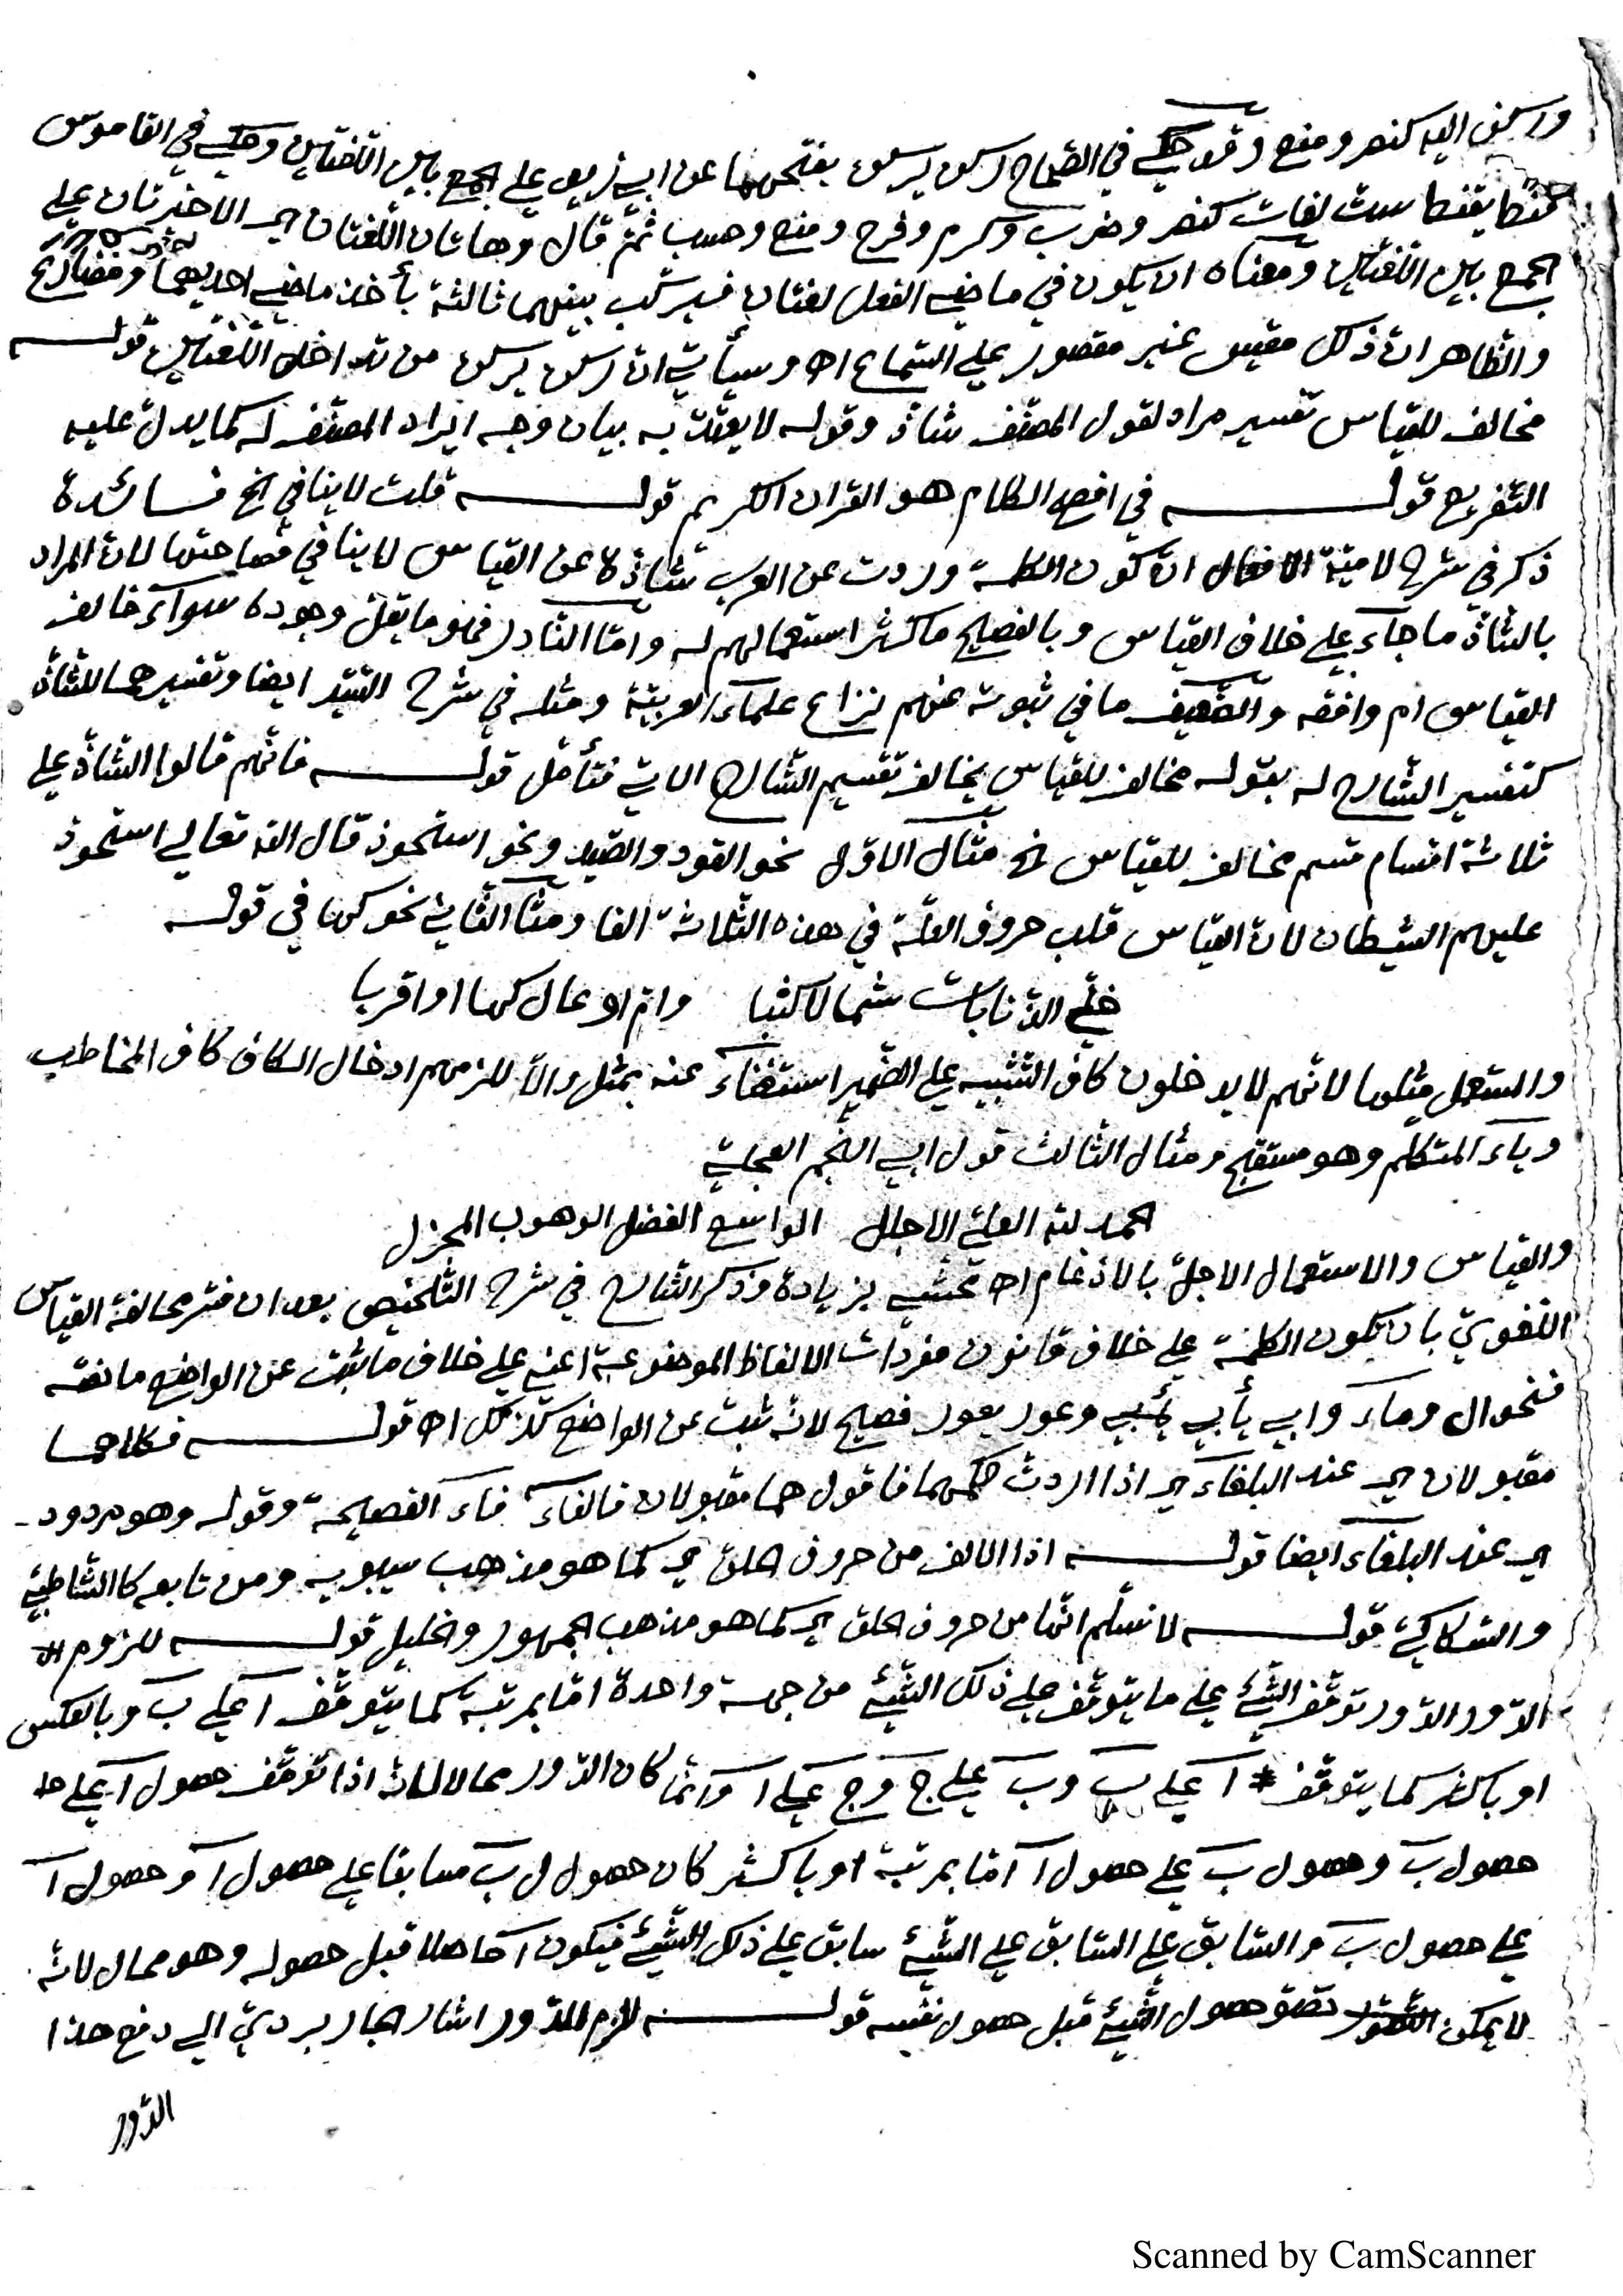 وركن اليه كنصر ومنع وقد حكي في الصحاح ركن يركن بفتحهما عن ابي زيد على الجمع بين اللغتين وحكي في القاموس
قنط يقنط ست لغات كنصر وضرب وكرم وفرح ومنع وحسب ثم قال وهاتان اللغتان اي الاخيرتان على
الجمع بين اللغتين ومعناه ان يكون في ماضي الفعل لغتان فيركب بينهما ثالثة بأخذ ماضي احديهما ومضارع
والظاهر ان ذلك مقيس غير مقصور على السماع اه وسيأتي ان ركن يركن من تداخل اللغتين قوله
مخالف للقياس تفسير مراد لقول المصنف شاذ وقوله لا يعتد به بيان وجه ايراد المصنف له كما يدل عليه
التفريع قوله في افصح الكلام هو القران الكريم قوله قلت لا ينافي الخ فائدة
ذكر في شرح لامية الافعال ان كون الكلمة وردت عن العرب شاذة عن القياس لا ينافي فصاحتها لان المراد
بالشاذ ما جاء على خلاف القياس وبالفصيح ما كثر استعمالهم له واما النادر فهو ما يقل وجوده سواء خالف
القياس ام وافقه والضعيف ما في ثبوته عنهم نزاع علماء العربية ومثله في شرح السيد ايضا وتفسيرهما للشاذ
كتفسير الشارح له بقوله مخالف للقياس يخالف تقسيم الشارح الاتي فتأمل قوله فانهم قالوا الشاذ على
ثلاثة اقسام قسم مخالف للقياس الخ مثال الاول نحو القود والصيد ونحو استحوذ قال الله تعالى استحوذ
عليهم الشيطان لان القياس قلب حروف العلة في هذه الثلاثة الفا ومثال الثاني نحو كها في قوله
خلى الذنابات شمالا كثبا وام اوعال كها او اقربا
والمستعمل مثلها لانهم لا يدخلون كاف التشبيه على الضمير استغناء عنه بمثل والا للزمهم ادخال الكاف كاف المخاطب
وياء المتكلم وهو مستقبح ومثال الثالث قول ابي النجم العجلي
الحمد لله العلي الاجلل الواسع الفضل الوهوب المجزل
والقياس والاستعمال الاجل بالادغام اه محشي بزيادة وذكر الشارح في شرح التلخيص بعد ان فسر مخالفة القياس
اللغوي بان يكون الكلمة على خلاف قانون مفردات الالفاظ الموضوعة اعني على خلاف ما ثبت عن الواضع ما نصه
فنحو ال وماء وابي يأبي وعور يعور فصيح لانه ثبت عن الواضع كذلك اه قوله فكلاهما
مقبولان اي عند البلغاء اي اذا اردت حكمهما فاقول هما مقبولان فالفاء فاء الفصيحة وقوله وهو مردود
اي عند البلغاء ايضا قوله اذا الالف من حروف الحلق اي كما هو مذهب سيبويه ومن تابعه كالشاطبي
والسكاكي قوله لا نسلم انها من حروف الحلق اي كما هو مذهب الجمهور والخليل قوله للزوم
الدور الدور توقف الشيء على ما يتوقف على ذلك الشيء من جهة واحدة اما بمرتبة كما يتوقف ا على ب وبالعكس
او باكثر كما يتوقف ا على ب وب على ج وج على ا وانما كان الدور محالا لانه اذا توقف حصول ا على
حصول ب وحصول ب على حصول ا اما بمرتبة او باكثر كان حصول ب سابقا على حصول ا وحصول ا
على حصول ب والسابق على السابق على الشيء سابق على ذلك الشيء فيكون ا حاصلا قبل حصوله وهو محال لانه
لا يمكن تصور حصول الشيء قبل حصول نفسه قوله للزم الدور اشار الجاربردي الى دفع هذا
الدور
Scanned by CamScanner